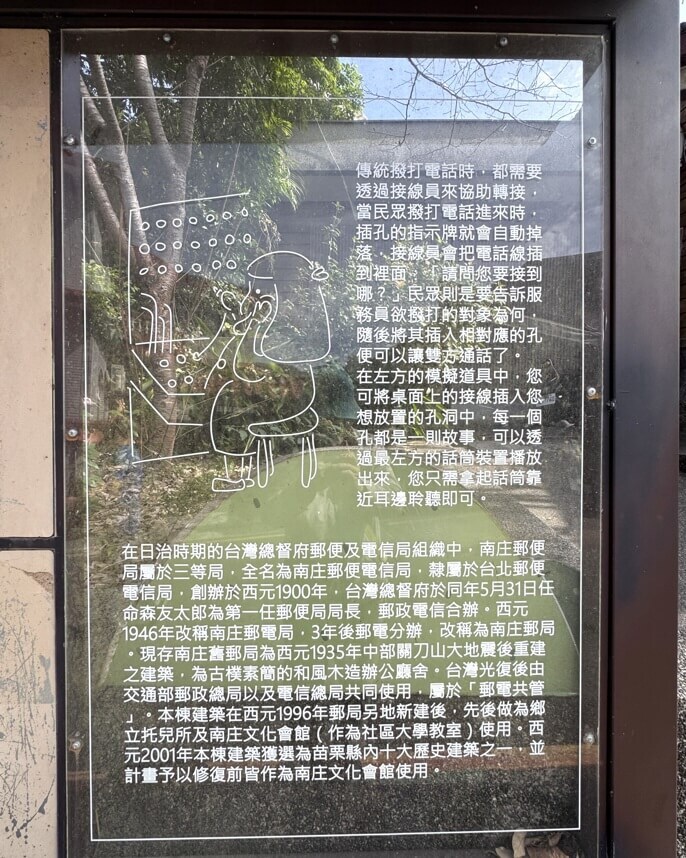 傳統撥打電話時，都需要
透過接線員來協助轉接，
當民眾撥打電話進來時，
插孔的指示牌就會自動掉
落，接線員會把電話線插
到裡面，「請問您要接到
哪？」民眾則是要告訴服
務員欲撥打的對象為何，
隨後將其插入相對應的孔
便可以讓雙方通話了。
在左方的模擬道具中，您
可將桌面上的接線插入您
想放置的孔洞中，每一個
孔都是一則故事，可以透
過最左方的話筒裝置播放
出來，您只需拿起話筒靠
近耳邊聆聽即可。
在日治時期的台灣總督府郵便及電信局組織中，南庄郵便
局屬於三等局，全名為南庄郵便電信局，隸屬於台北郵便
電信局，創辦於西元1900年，台灣總督府於同年5月31日任
命森友太郎為第一任郵便局局長，郵政電信合辦。西元
1946年改稱南庄郵電局，3年後郵電分辦，改稱為南庄郵局
。現存南庄舊郵局為西元1935年中部關刀山大地震後重建
之建築，為古樸素簡的和風木造辦公廳舍。台灣光復後由
交通部郵政總局以及電信總局共同使用，屬於「郵電共管
」。本棟建築在西元1996年郵局另地新建後，先後做為鄉
立托兒所及南庄文化會館（作為社區大學教室）使用。西
元2001年本棟建築獲選為苗栗縣內十大歷史建築之一，並
計畫予以修復前皆作為南庄文化會館使用。